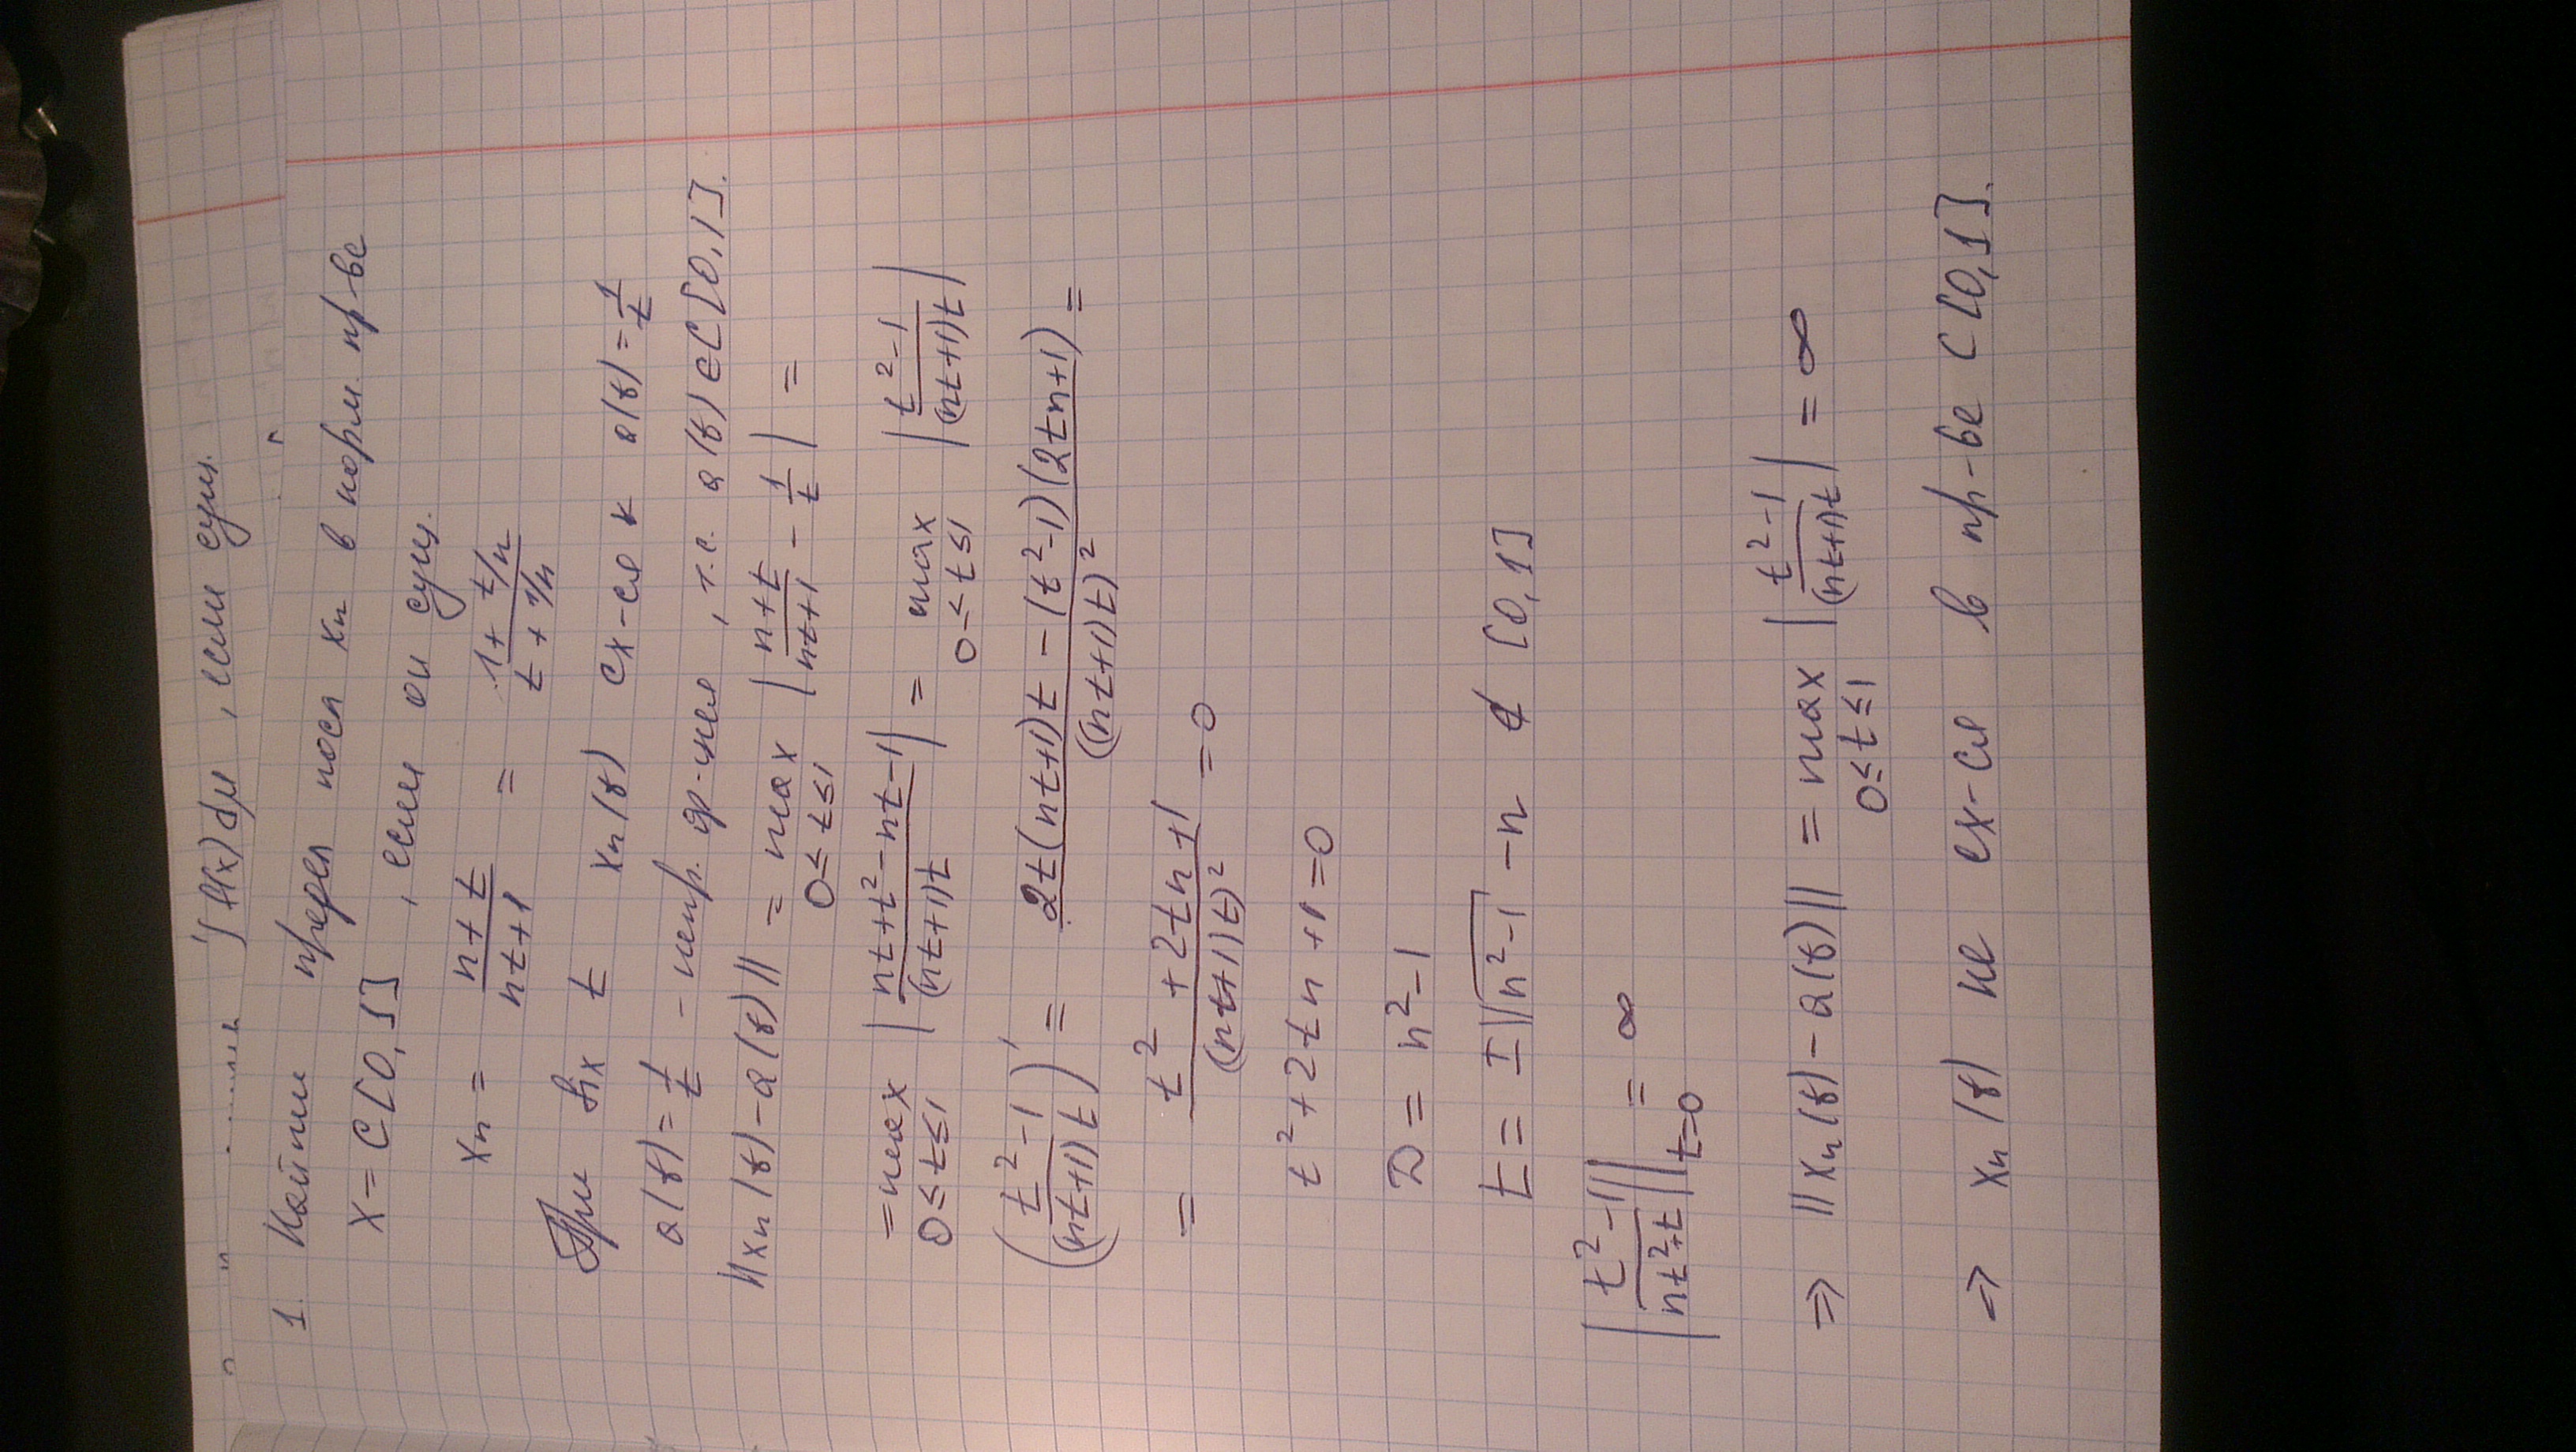 ∫f(x)dμ, если сущ.
1. Найти предел посл xₙ в норм пр-ве
X = C[0,1], если он сущ.
xₙ = (n+t)/(nt+1) = (1+t/n)/(t+1/n)
При фх t xₙ(t) сх-ся к a(t) = 1/t
a(t) = 1/t - непр. ф-ция, т.е. a(t) ∈ C[0,1].
||xₙ(t) - a(t)|| = max 0≤t≤1 |(n+t)/(nt+1) - 1/t| =
= max 0≤t≤1 |(nt+t²-nt-1)/((nt+1)t)| = max 0≤t≤1 |(t²-1)/((nt+1)t)|
((t²-1)/((nt+1)t))' = (2t(nt+1)t - (t²-1)(2tn+1))/((nt+1)t)² =
= (t²+2tn+1)/((nt+1)t)² = 0
t²+2tn+1=0
D = n²-1
t = ±√(n²-1) - n ∉ [0,1]
|(t²-1)/(nt²+t)||t=0 = ∞
⇒ ||xₙ(t) - a(t)|| = max 0≤t≤1 |(t²-1)/((nt+1)t)| = ∞
⇒ xₙ(t) не сх-ся в пр-ве C[0,1].